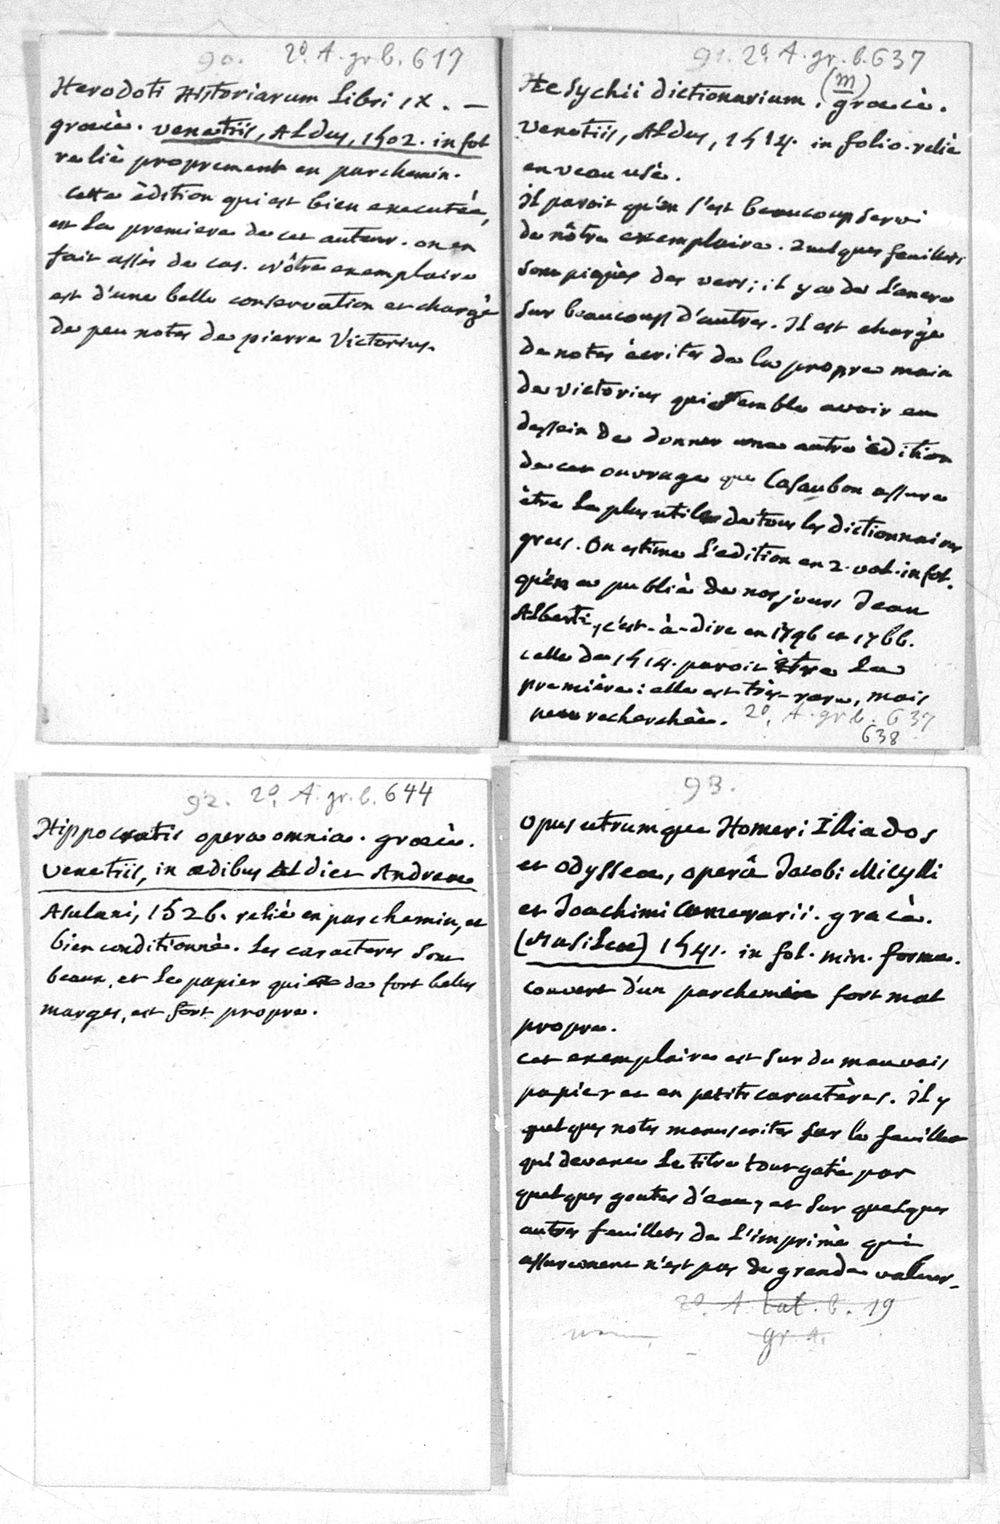 90. 2° A. gr. b. 617
Herodoti Historiarum Libri IX. —
græcè. venetiis, Aldus, 1502. in fol
relié proprement en parchemin.
Cette èdition qui est bien executée,
est la premiere de cet auteur. on en
fait assés de cas. nôtre exemplaire
est d'une belle conservation et chargé
de peu notes de pierre Victorius.
91. 2° A. gr. b. 637
(m)
Hesychii dictionarium. græcè.
venetiis, Aldus, 1514. in folio. relié
en veau usé.
il paroit qu'on s'est beaucoup servi
de nôtre exemplaire. quelques feuillets
sont piqués des vers; il y a de l'encre
sur beaucoup d'autres. Il est chargé
de notes écrites de la propre main
de victorius qui semble avoir eu
dessein de donner une autre èdition
de cet ouvrage que Casaubon assure
être le plus utile de tous les dictionnaires
grecs. On estime l'edition en 2. vol. in fol.
qu'en a publié de nos jours Jean
Alberti, c'est-à-dire en 1746 et 1766.
celle de 1514. paroit être la
première: elle est très-rare, mais
peu recherchée. 2° A. gr. b. 637
638
92. 2° A. gr. b. 644
Hippocratis opera omnia. græcè.
venetiis, in ædibus Aldi et Andreæ
Asulani, 1526. relié en parchemin, et
bien conditionné. Les caracteres sont
beaux, et le papier qui a de fort belles
marges, est fort propre.
93.
opus utrumque Homeri Iliados
et odysseæ, operâ Jacobi Micylli
et Joachimi Camerarii. græcè.
(Basileæ) 1541. in fol. min. forma.
couvert d'un parchemin fort mal
propre.
cet exemplaire est sur du mauvais
papier et en petits caractères. il y
quelques notes manuscrites sur la feuille
qui devance le titre tout gaté par
quelques goutes d'eau, et sur quelques
autres feuillets de l'imprimé qui
assurement n'est pas de grande valeur.
2° A. lat. b. 19
gr. a.